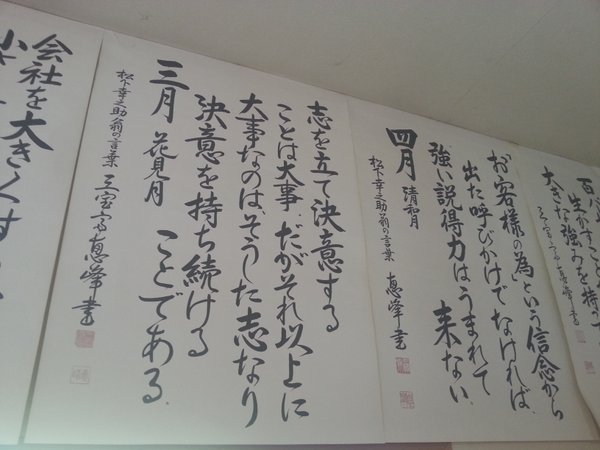 生かすこと
大きな強みを持つ
お客様の為という信念から
出た呼びかけでなければ、
強い説得力はうまれて
来ない。
四月 清和月
松下幸之助翁の言葉 恵峰書
志を立て決意する
ことは大事、だがそれ以上に
大事なのは、そうした志なり
決意を持ち続ける
ことである。
三月 花見月
松下幸之助翁の言葉 恵峰書
会社を大きくす